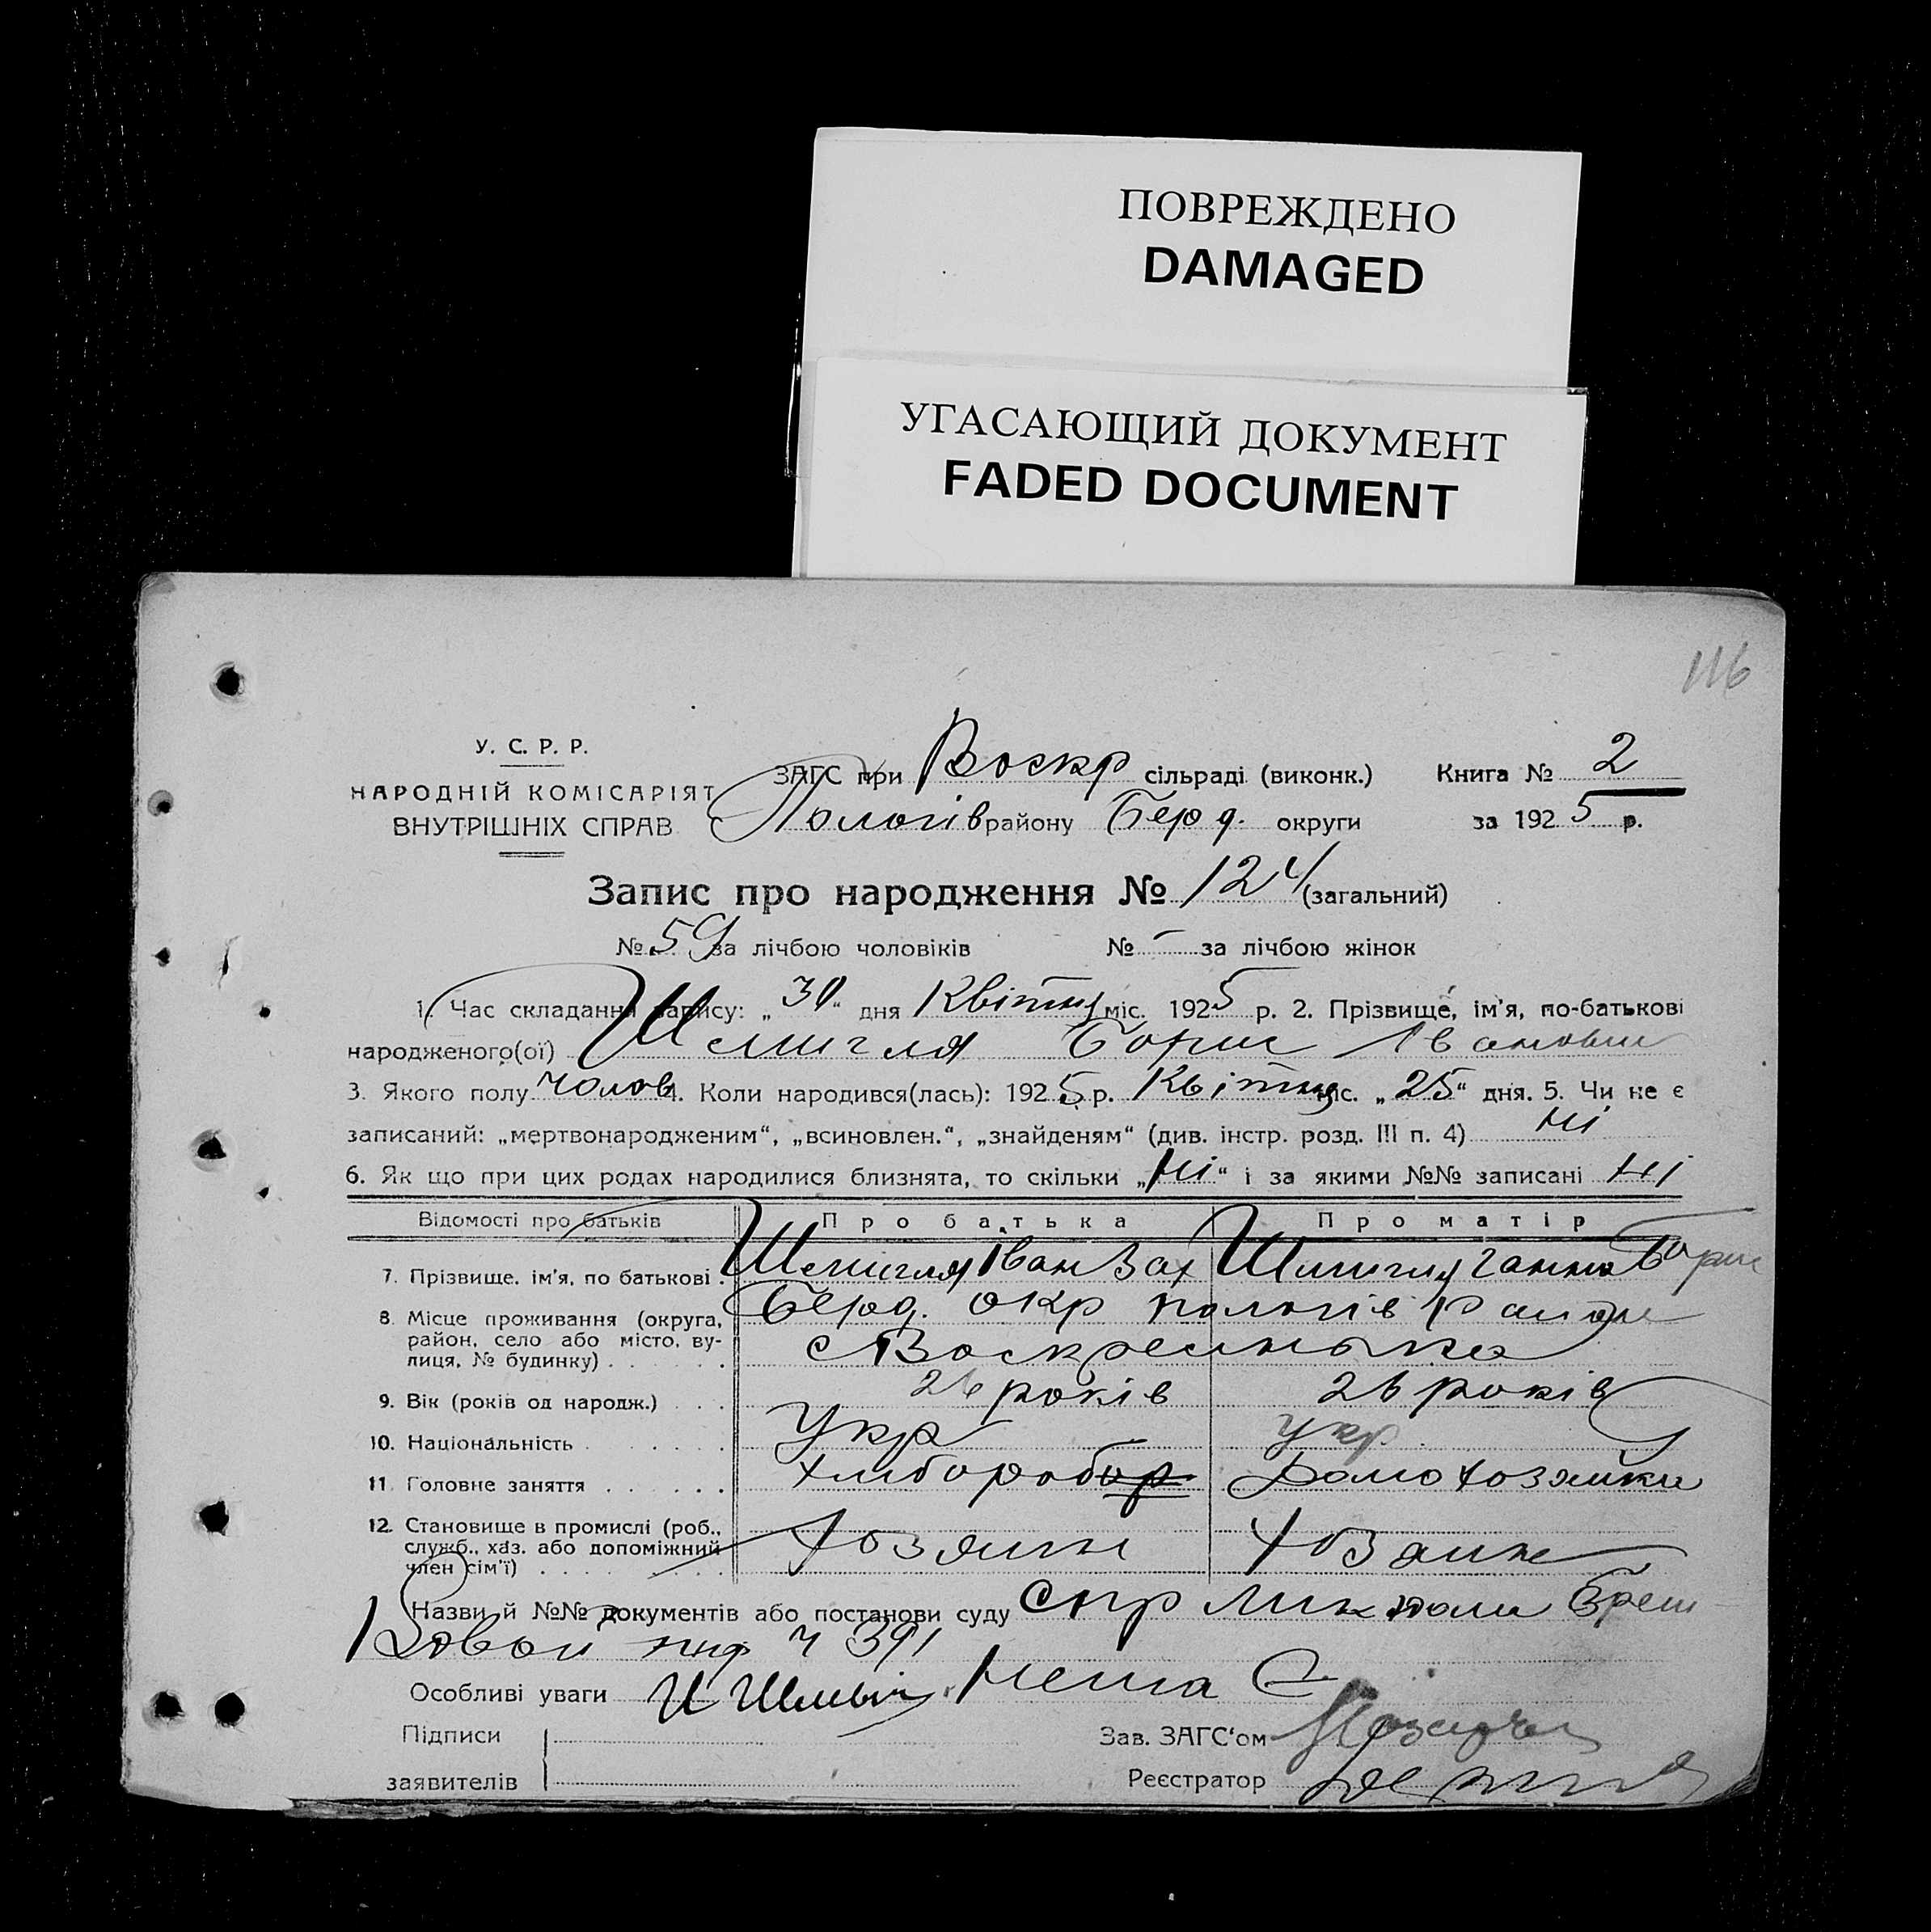 ПОВРЕЖДЕНО
DAMAGED
УГАСАЮЩИЙ ДОКУМЕНТ
FADED DOCUMENT
116
У. С. Р. Р.
НАРОДНІЙ КОМІСАРІЯТ
ВНУТРІШНІХ СПРАВ
ЗАГС при Воскр сільраді (виконк.) Книга № 2
Пологів району Берд. округи за 1925 р.
Запис про народження № 124 (загальний)
№ 59 за лічбою чоловіків № – за лічбою жінок
1. Час складання запису: „30“ дня Квітня міс. 1925 р. 2. Прізвище, ім'я, по-батькові
народженого(ої) Шмигля Борис Іванович
3. Якого полу Чолов 4. Коли народився(лась): 1925 р. Квітня міс. „25“ дня. 5. Чи не є
записаний: „мертвонародженим“, „всиновлен.“, „знайденям“ (див. інстр. розд. III п. 4) ні
6. Як що при цих родах народилися близнята, то скільки „ні“ і за якими №№ записані ні
Відомості про батьків Про батька Про матір
7. Прізвище. ім'я, по батькові . Шмигля Іван Зах Шмигля Ганна Борис
8. Місце проживання (округа, Берд. окр пологів район
район, село або місто, ву- с Воскресенька
лиця, № будинку) . . . . . .
9. Вік (років од народж.) . . . 26 років 26 років
10. Національність . . . . . . Укр укр
11 Головне заняття . . . . . . Хлибороб Домохозяйка
12. Становище в промислі (роб.,
служб., хаз. або допоміжний Хозяин Хозаин
член сім'ї) . . . . . . . . .
Назви й №№ документів або постанови суду спр
ч 391
Особливі уваги Нема
Підписи Зав. ЗАГС‘ом
заявителів Реєстратор